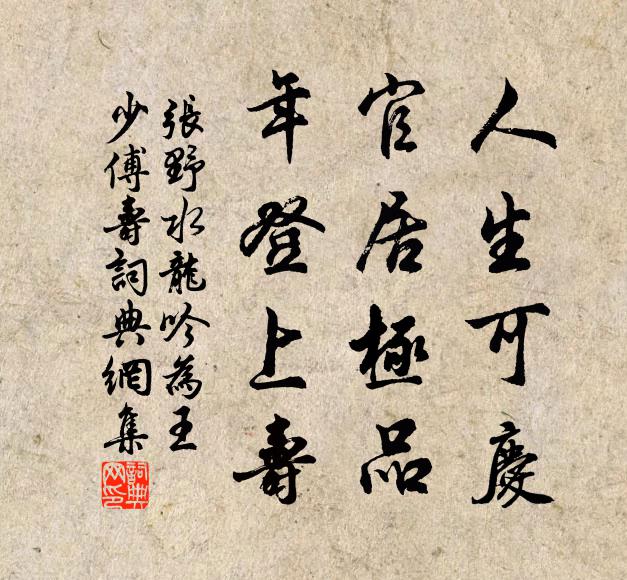 人生可慶
官居極品
年登上壽
張野水龍吟為王
少傅壽詞典網集
詞典網印